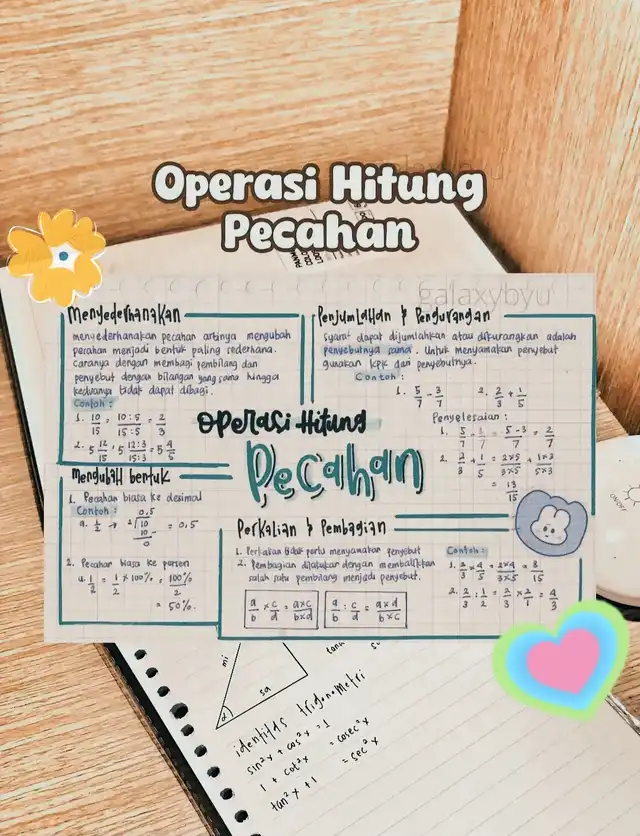 Operasi Hitung
Pecahan
galaxybyu
Menyederhanakan
menyederhanakan pecahan artinya mengubah
pecahan menjadi bentuk paling sederhana.
Caranya dengan membagi pembilang dan
penyebut dengan bilangan yang sama hingga
keduanya tidak dapat dibagi.
Contoh:
1. 10/15 = 10:5/15:5 = 2/3
2. 5 12/15 = 5 12:3/15:3 = 5 4/5
Penjumlahan & Pengurangan
Syarat dapat dijumlahkan atau dikurangkan adalah
penyebutnya sama. Untuk menyamakan penyebut
gunakan kpk dari penyebutnya.
Contoh:
1. 5/7 - 3/7 2. 2/3 + 1/5
Penyelesaian:
1. 5/7 - 3/7 = 5-3/7 = 2/7
2. 2/3 + 1/5 = 2x5/3x5 + 1x3/5x3
= 13/15
Operasi Hitung
Pecahan
Mengubah bentuk
1. Pecahan biasa ke desimal
Contoh:
a. 1/2 → 0,5
2 10
10
0
= 0,5
2. Pecahan biasa ke persen
a. 1/2 = 1/2 x 100% = 100%/2
= 50%.
Perkalian & Pembagian
1. Perkalian tidak perlu menyamakan penyebut
2. Pembagian dilakukan dengan membalikkan
salah satu pembilang menjadi penyebut.
a/b x c/d = axc/bxd
a/b : c/d = axd/bxc
Contoh:
1. 2/3 x 4/5 = 2x4/3x5 = 8/15
2. 2/3 : 1/2 = 2/3 x 2/1 = 4/3
mi
sa
identitas trigonometri
sin²x + cos²x = 1
1 + cot²x = cosec²x
tan²x + 1 = sec²x